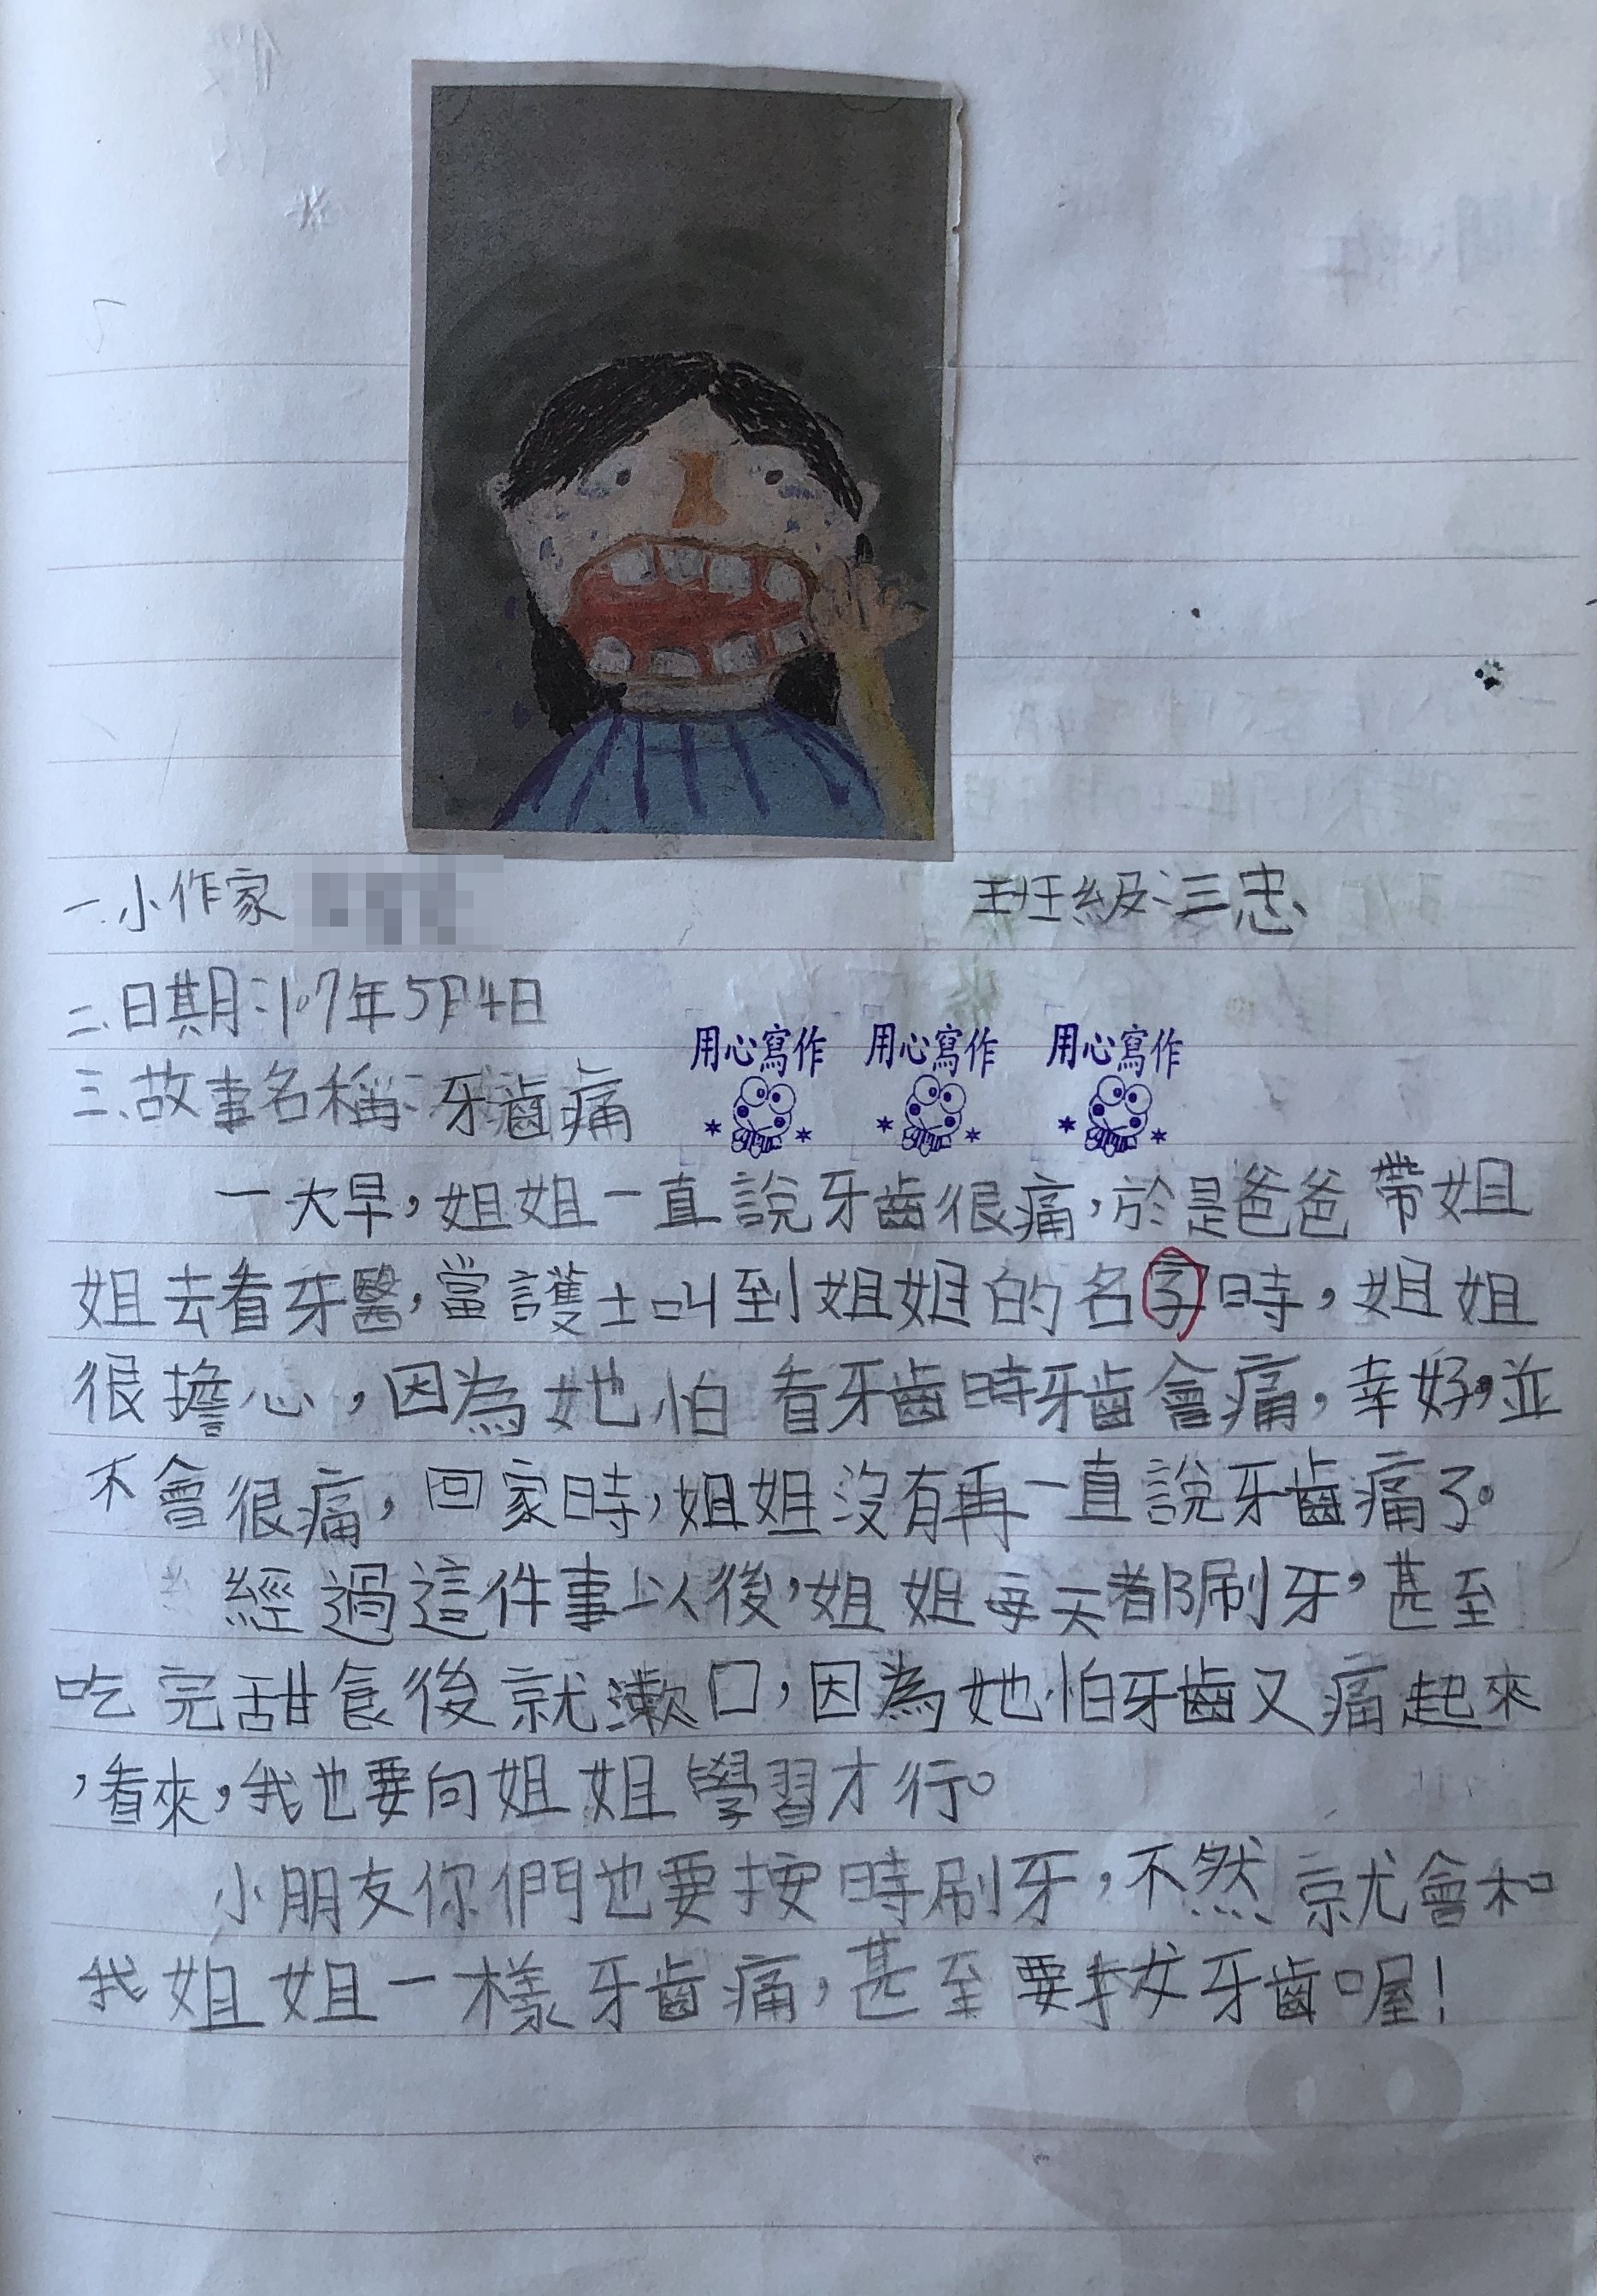 一.小作家 班級:三忠
二.日期:107年5月4日
用心寫作 用心寫作 用心寫作
三、故事名稱:牙齒痛
一大早，姐姐一直說牙齒很痛，於是爸爸帶姐
姐去看牙醫，當護士叫到姐姐的名字時，姐姐
很擔心，因為她怕看牙齒時牙齒會痛，幸好，並
不會很痛，回家時，姐姐沒有再一直說牙齒痛了。
經過這件事以後，姐姐每天都刷牙，甚至
吃完甜食後就漱口，因為她怕牙齒又痛起來
，看來，我也要向姐姐學習才行。
小朋友你們也要按時刷牙，不然就會和
我姐姐一樣牙齒痛，甚至要拔牙齒喔！